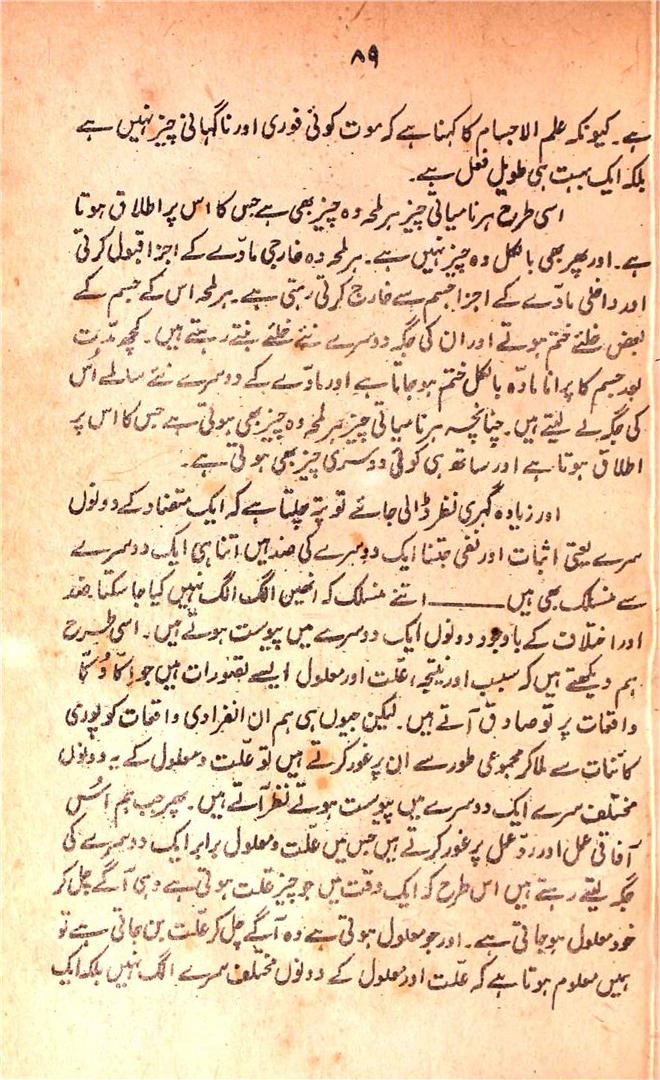 ۸۹
ہے۔ کیونکہ علم الاجسام کا کہنا ہے کہ موت کوئی فوری اور ناگہانی چیز نہیں ہے
بلکہ ایک بہت ہی طویل فعل ہے۔
اسی طرح ہر نامیاتی چیز ہر لمحہ وہ چیز بھی ہے جس کا اس پر اطلاق ہوتا
ہے۔ اور پھر بھی بالکل وہ چیز نہیں ہے۔ ہر لمحہ وہ خارجی مادّے کے اجزا قبول کرتی
اور داخلی مادّے کے اجزا جسم سے خارج کرتی رہتی ہے۔ ہر لمحہ اس کے جسم کے
بعض خلئے ختم ہوتے اور ان کی جگہ دوسرے نئے خلئے بنتے رہتے ہیں۔ کچھ مدّت
بعد جسم کا پرانا مادّہ بالکل ختم ہو جاتا ہے اور مادّے کے دوسرے نئے سالمے اُس
کی جگہ لے لیتے ہیں۔ چنانچہ ہر نامیاتی چیز ہر لمحہ وہ چیز بھی ہوتی ہے جس کا اس پر
اطلاق ہوتا ہے اور ساتھ ہی کوئی دوسری چیز بھی ہوتی ہے۔
اور زیادہ گہری نظر ڈالی جائے تو پتہ چلتا ہے کہ ایک متضاد کے دونوں
سرے یعنی اثبات اور نفی جتنا ایک دوسرے کی ضد ہیں اتنا ہی ایک دوسرے
سے منسلک بھی ہیں ——— اتنے منسلک کہ انھیں الگ الگ نہیں کیا جا سکتا۔ ضد
اور اختلاف کے باوجود دونوں ایک دوسرے میں پیوست ہوتے ہیں۔ اسی طرح
ہم دیکھتے ہیں کہ سبب اور نتیجہ، علّت اور معلول ایسے تصورات ہیں جو اِکّا دُکّا
واقعات پر تو صادق آتے ہیں۔ لیکن جیوں ہی ہم ان انفرادی واقعات کو پوری
کائنات سے ملا کر مجموعی طور سے ان پر غور کرتے ہیں تو علّت و معلول کے یہ دونوں
مختلف سرے ایک دوسرے میں پیوست ہوتے نظر آتے ہیں۔ پھر جب ہم اُس
آفاقی عمل اور ردّ عمل پر غور کرتے ہیں جس میں علّت و معلول برابر ایک دوسرے کی
جگہ لیتے رہتے ہیں اس طرح کہ ایک وقت میں جو چیز علت ہوتی ہے وہی آگے چل کر
خود معلول ہو جاتی ہے۔ اور جو معلول ہوتی ہے وہ آگے چل کر علّت بن جاتی ہے تو
ہمیں معلوم ہوتا ہے کہ علّت اور معلول کے دونوں مختلف سرے الگ نہیں بلکہ ایک